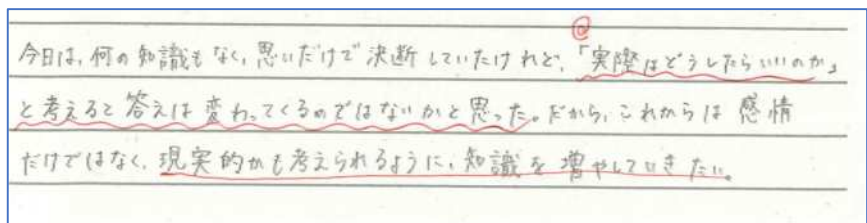 今日は、何の知識もなく、思いだけで決断していたけれど、「実際はどうしたらいいのか」
と考えると答えは変わってくるのではないかと思った。だから、これからは感情
だけではなく、現実的かも考えられるように、知識を増やしていきたい。